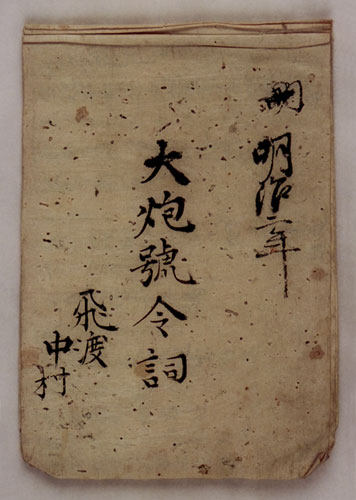 明治二年
大炮號令詞
飛渡
中村